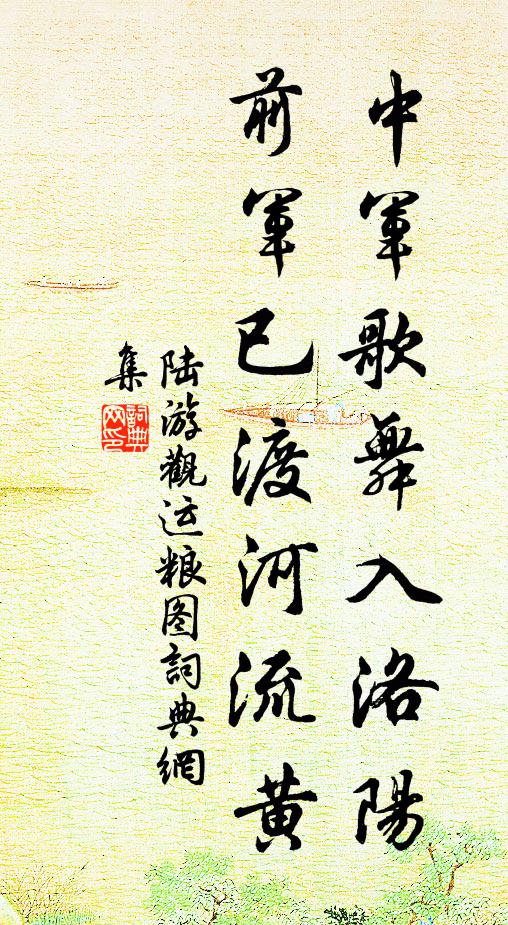 中軍歌舞入洛陽
前軍已渡河流黄
陆游觀运粮图詞典網
集
詞典
网印